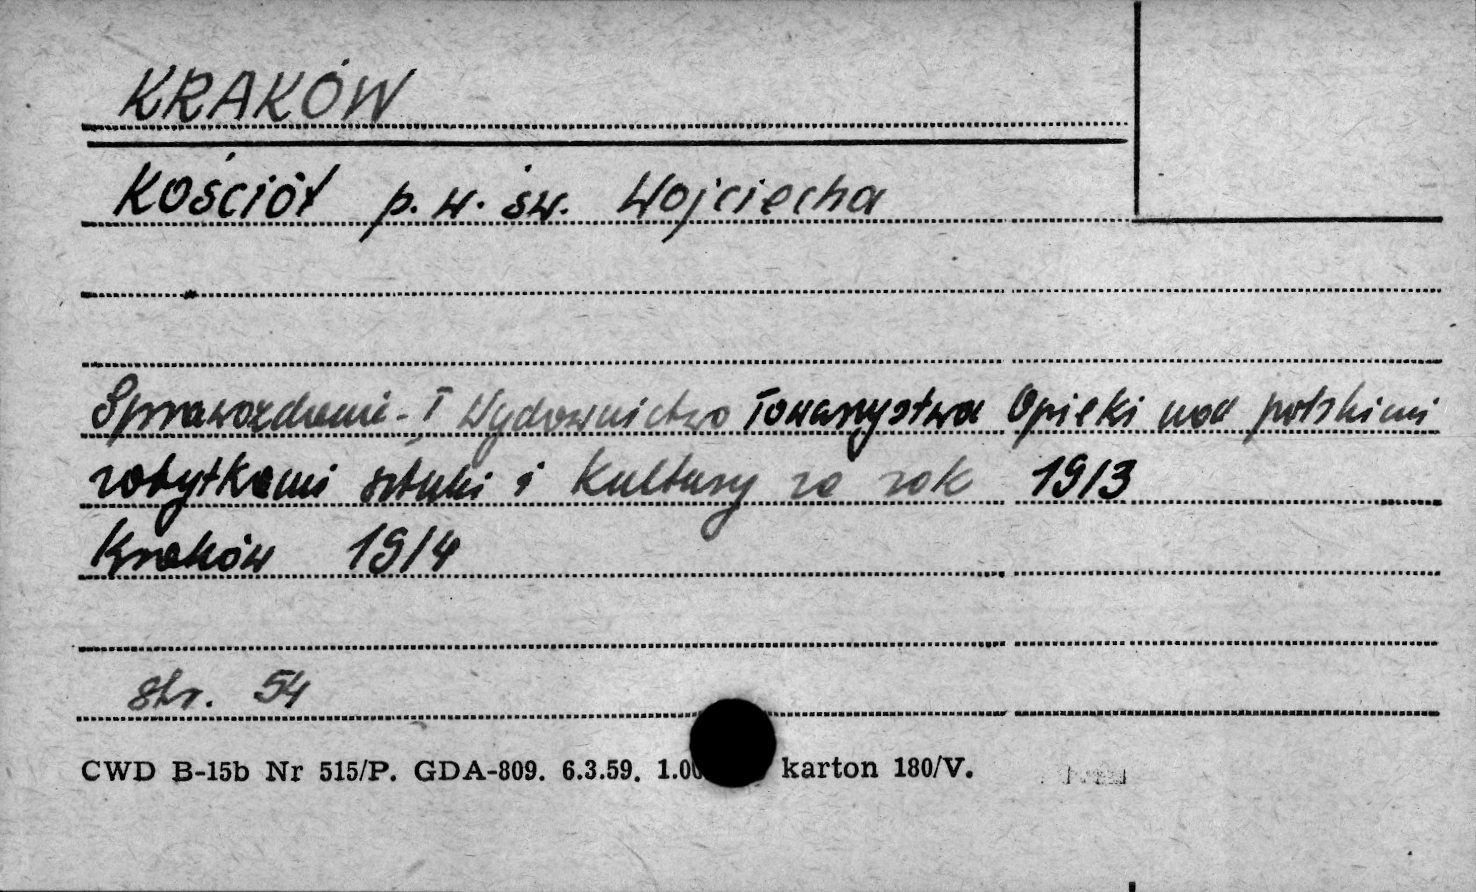 KRAKÓW
Kościół p.w. św. Wojciecha
Sprawozdanie - I Wydawnictwo Towarzystwa Opieki nad polskimi
zabytkami sztuki i Kultury za rok 1913
Kraków 1914
str. 54
CWD B-15b Nr 515/P. GDA-809. 6.3.59. 1.00 karton 180/V.